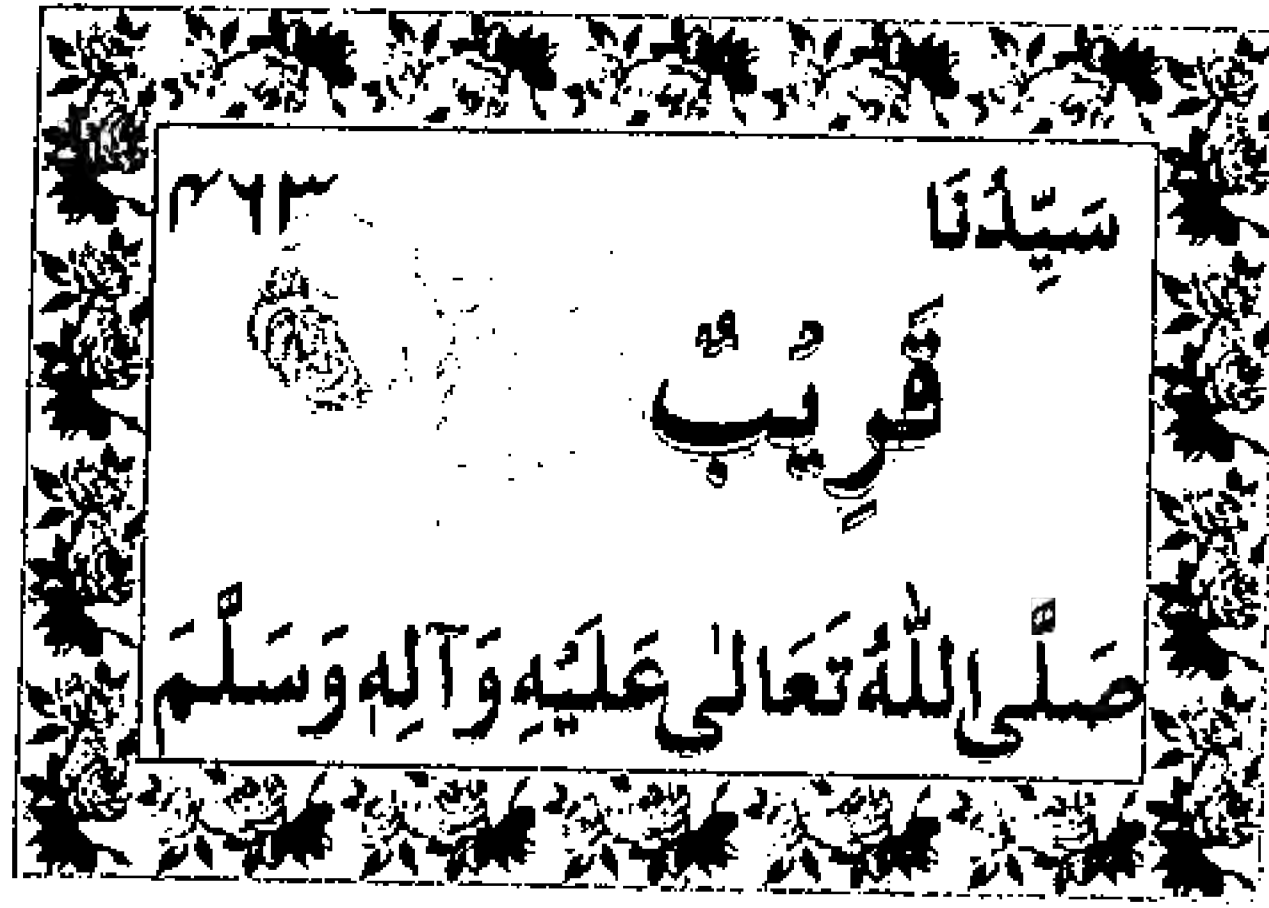 سَيِّدُنَا
قَرِيْبٌ
صَلَّى اللّٰهُ تَعَالٰى عَلَيْهِ وَآلِهٖ وَسَلَّمَ